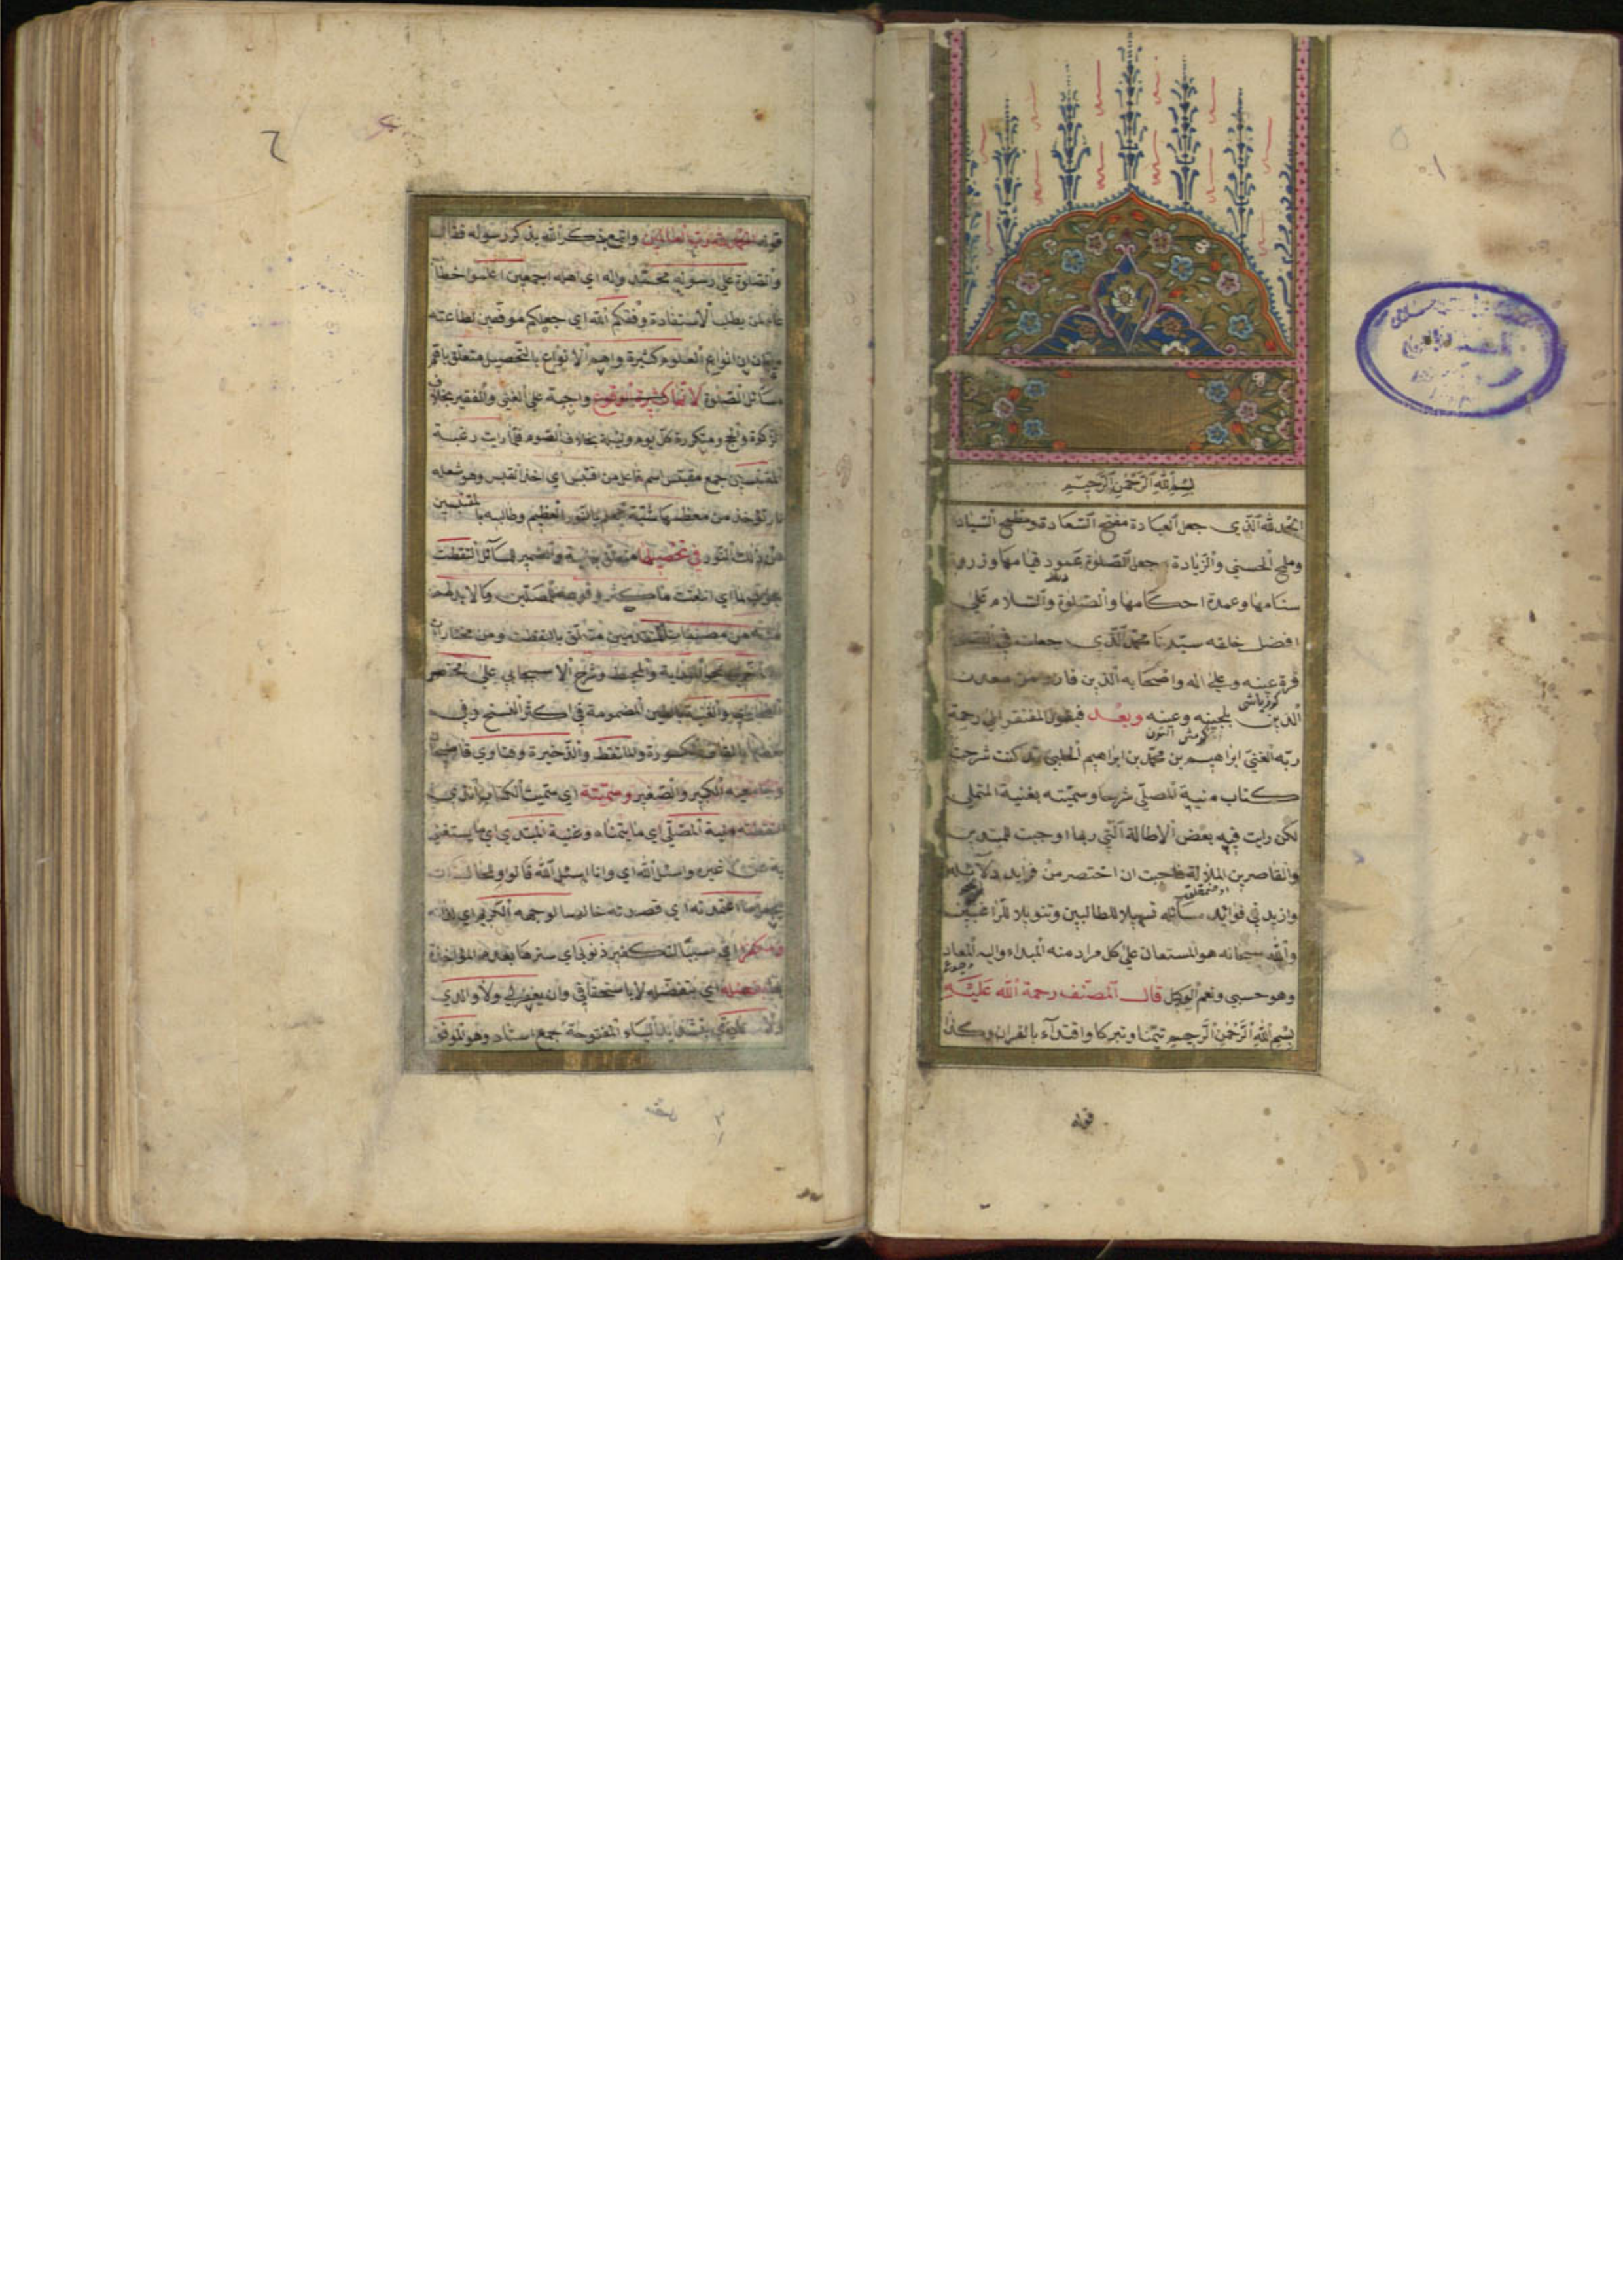 بسم الله الرحمن الرحيم
الحمد لله الذي جعل العبادة مفتح السعادة ومطمح السيادة
ومنح الحسني والزيادة وجعل الصلوة عمود قيامها وذروة
سنامها وعمدة احكامها والصلوة والسلام علي
افضل خلقه سيدنا محمد الذي جعلت في الصلوة
قرة عينه وعلي اله واصحابه الذين فازوا من معدن
الدين بلجينه وعينه وبعد فيقول المفتقر الي رحمة
ربه الغني ابراهيم بن محمد بن ابراهيم الحلبي قد كنت شرحت
كتاب منية المصلي شرحا وسميته بغنية المتملي
لكن رايت فيه بعض الاطالة التي ربما اوجبت للمبتدين
والقاصرين الملالة فاحببت ان اختصر من فرايد دلائله
وازيد في فوائد مسائله تسهيلا للطالبين وتنويلا للراغبين
والله سبحانه هو المستعان علي كل مراد منه المبداء واليه المعاد
وهو حسبي ونعم الوكيل قال المصنف رحمة الله عليه
بسم الله الرحمن الرحيم تيمنا وتبركا واقتداء بالقران وكذا
قوله
رب العالمين واتبع ذكر الله بذكر رسوله فقال
والصلوة علي رسوله محمد واله اي اهله اجمعين اعلموا خطاب
عام لمن يطلب الاستفادة وفقكم الله اي جعلكم موفقين لطاعته
ان انواع العلوم كثيرة واهم الانواع بالتحصيل متعلق باهم
مسائل الصلوة لانها كثيرة الوقوع واجبة علي الغني والفقير بخلاف
الزكوة والحج ومتكررة كل يوم وليلة بخلاف الصوم فلما رايت رغبة
المقتبسين جمع مقتبس اسم فاعل من اقتبس اي اخذ القبس وهو شعلة
نار تؤخذ من معظمها شبه العلم بالنور العظيم وطالبيه بالمقتبسين
من ذلك النور في تحصيلها متعلق برغبة والضمير للمسائل التقطت
اي انتخبت ما كثر وقوعه للمصلين وما لا بد لهم
منه من مصنفات المتقدمين متعلق بالتقطت ومن مختارات
المتاخرين نحو الهداية والمحيط وشرح الاسبيجابي علي مختصر
والغنية بالغين المضمومة في اكثر النسخ وفي
بعضها بالقاف المكسورة والملتقط والذخيرة وفتاوي قاضيخان
وجامعيه الكبير والصغير وسميته اي سميت الكتاب الذي
التقطته منية المصلي اي ما يتمناه وغنية المبتدي اي ما يستغني
به عن غيره واسئل الله اي وانا اسئل الله
ما اعتقدته اي قصدته خالصا لوجهه الكريم اي لذاته
ومكفرا اي سببا لتكفير ذنوبي اي سترها بعدم المؤاخذة
بفضله اي بتفضله لا باستحقاقي وان يغفر لي ولوالدي
المفتوحة جمع استاد وهو الموفق